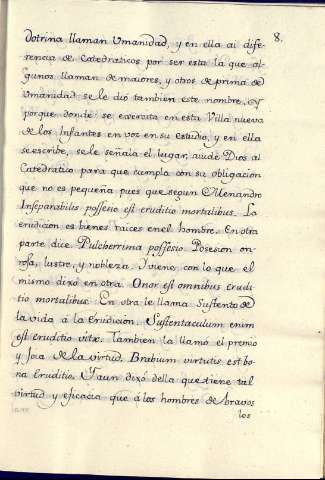 8.
dotrina llaman Vmanidad, y en ella ai dife-
rencia de Catedraticos por ser esta la que al-
gunos llaman de maiores, y otros de prima de
Vmanidad se le dió tambien este nombre. Y
porque donde se exercita en esta Villa nueva
de los Infantes en voz en su estudio, y en ella
se escribe, se le señala el lugar, aiude Dios al
Catedratico para que cumpla con su obligacion
que no es pequeña pues que segun Menandro
Inseparabilis possesio est eruditio mortalibus. La
erudicion es bienes raices en el hombre. En otra
parte dice Pulcherrima possesio. Posesion on-
rosa, lustre, y nobleza. I viene con lo que el
mismo dixo en otra. Onor est omnibus erudi-
tio mortalibus. En otra le llama Sustento de
la vida á la Erudicion. Sustentaculum enim
est eruditio vitæ. Tambien la llamó el premio
y joia de la virtud. Brabium virtutis est bo-
na Eruditio. I aun dixo della que tiene tal
virtud y eficacia que á los hombres de bravos
los